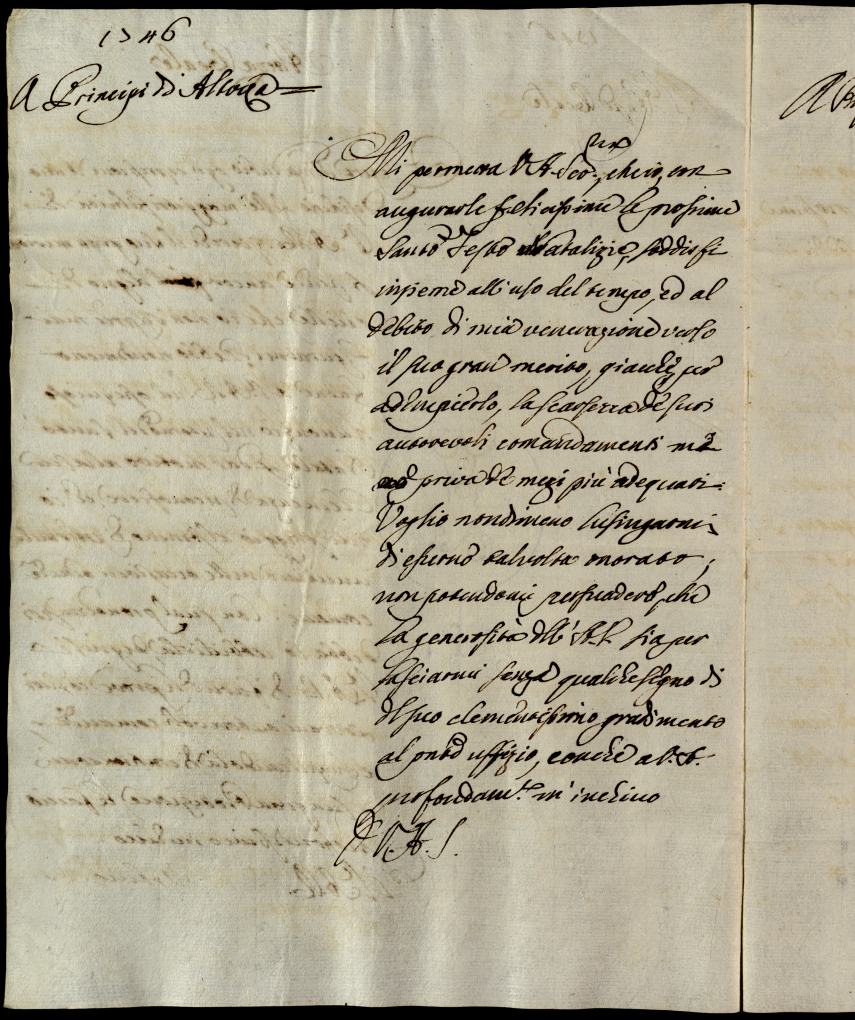 1746
A Principi di Altezza
Mi permetta V. A. Ser.ma, che io, con
augurarle felicissime le prossime
Sante Feste Natalizie, soddisfi
insieme all'uso del tempo, ed al
debito di mia venerazione verso
il suo gran merito, giacchè, per
adempierlo, la scarsezza de suoi
autorevoli comandamenti me
ne priva de mezi più adequati.
Voglio nondimeno lusingarmi
di esserne talvolta onorato,
non potendomi persuadere, che
la generosità dell' A. V. sia per
lasciarmi senza qualche segno di
del suo clementissimo gradimento
al pnte uffizio, con che a V. A.
profondam.te m'inchino
D. V. A. S.
A